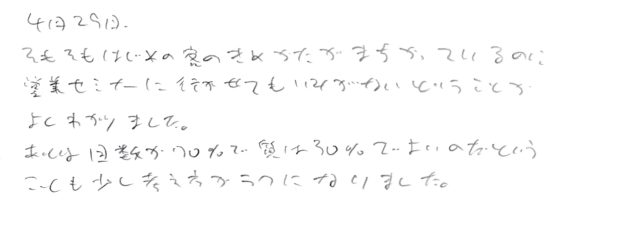 4月29日。
そもそもはじめの客のきめかたがまちがっているのに
営業セミナーに行かせてもいみがないということが
よくわかりました。
あとは回数が70%で質は30%でよいのだという
ことも少し考え方がラクになりました。